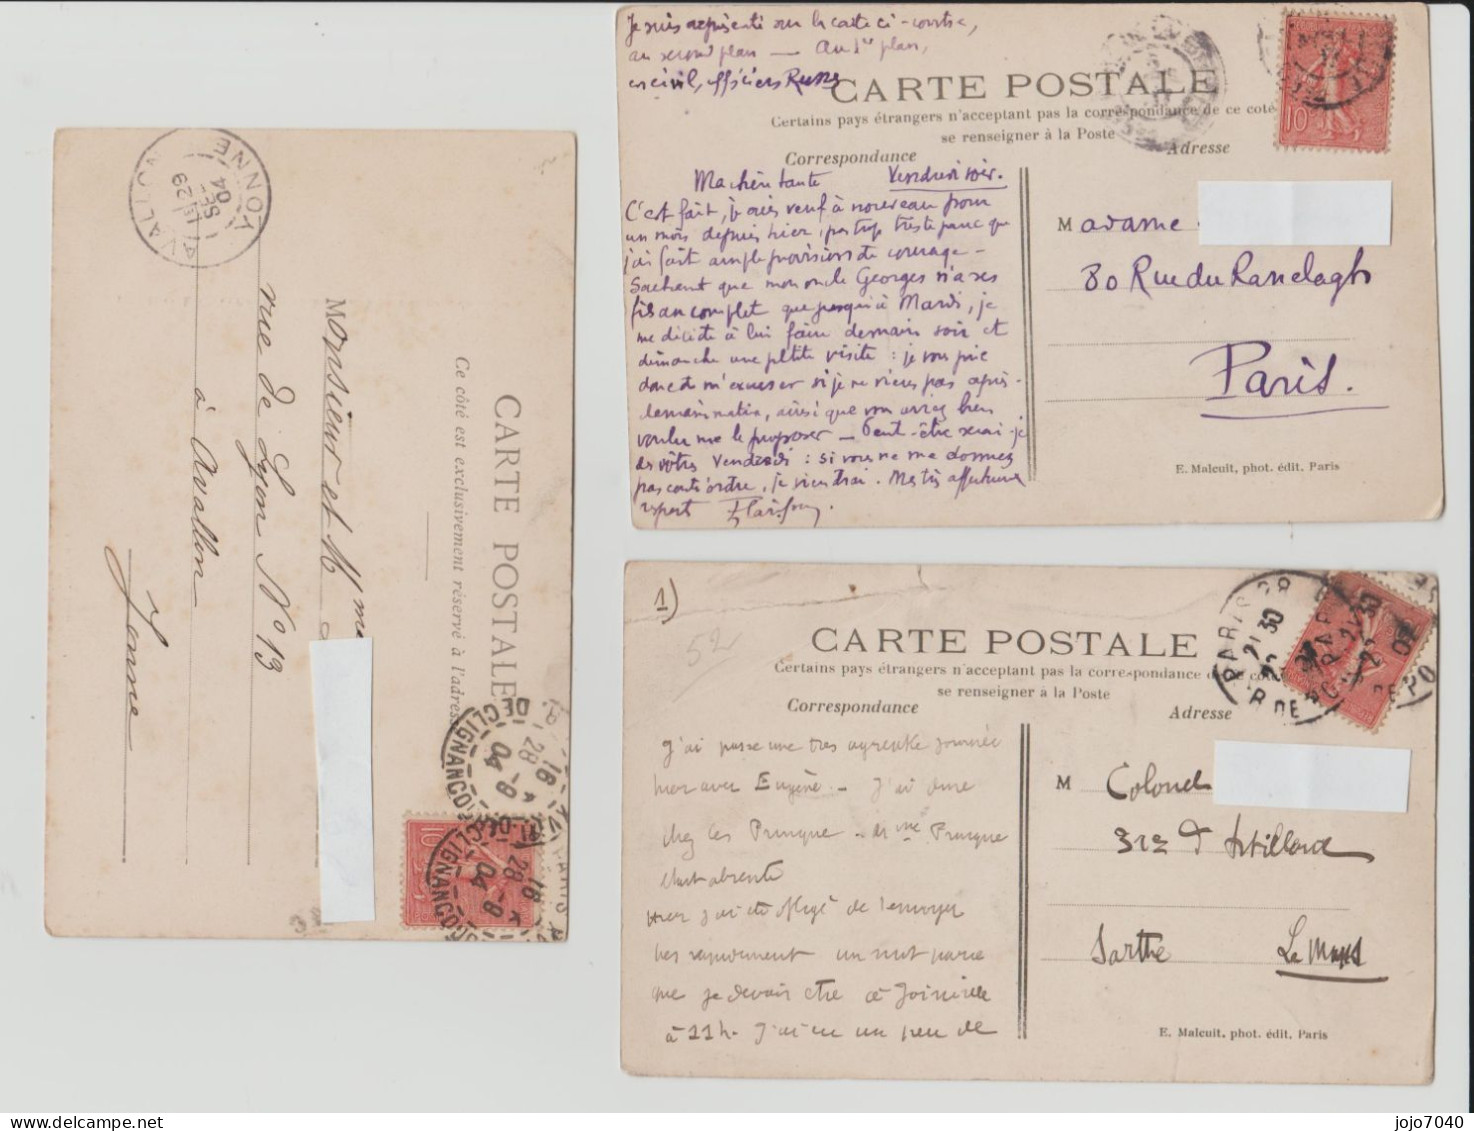 Je suis représenté sur la carte ci-contre,
au second plan — Au 1er plan,
en civil, officiers Russes
CARTE POSTALE
Certains pays étrangers n'acceptant pas la correspondance de ce coté
se renseigner à la Poste
Correspondance
Adresse
10
Ma chère tante Vendredi soir.
C'est fait, je suis veuf à nouveau pour
un mois depuis hier, pas trop triste parce que
j'ai fait ample provision de courage —
Sachant que mon oncle Georges n'a ses
fils au complet que jusqu'à Mardi, je
me décide à lui faire demain soir et
dimanche une petite visite : je vous prie
donc de m'excuser si je ne viens pas après-
demain matin, ainsi que vous aviez bien
voulu me le proposer — Peut-être serai-je
des vôtres Vendredi : si vous ne me donnez
pas contr'ordre, je viendrai. Mes très affectueux
respects
Madame
80 Rue du Ranelagh
Paris.
E. Malcuit, phot. édit, Paris
AVALLON
YONNE
29
SEPT
04
CARTE POSTALE
Ce côté est exclusivement réservé à l'adresse
Monsieur et Mme
rue de Lyon N° 13
à Avallon
Yonne
DECLIGNANCO
18
28 - 9
04
1)
52
CARTE POSTALE
Certains pays étrangers n'acceptant pas la correspondance de ce coté
se renseigner à la Poste
Correspondance
Adresse
PARIS
21 30
J'ai passé une très agréable journée
hier avec Eugène. — J'ai diné
chez les Prinque — Mme Prinque
était absente
Hier j'ai été obligé de t'envoyer
très rapidement un mot parce
que je devais être à Joinville
à 11h. J'ai eu un peu de
M Colonel
31e d'Artillerie
Sarthe Le Mans
E. Malcuit, phot. édit, Paris
jojo7040